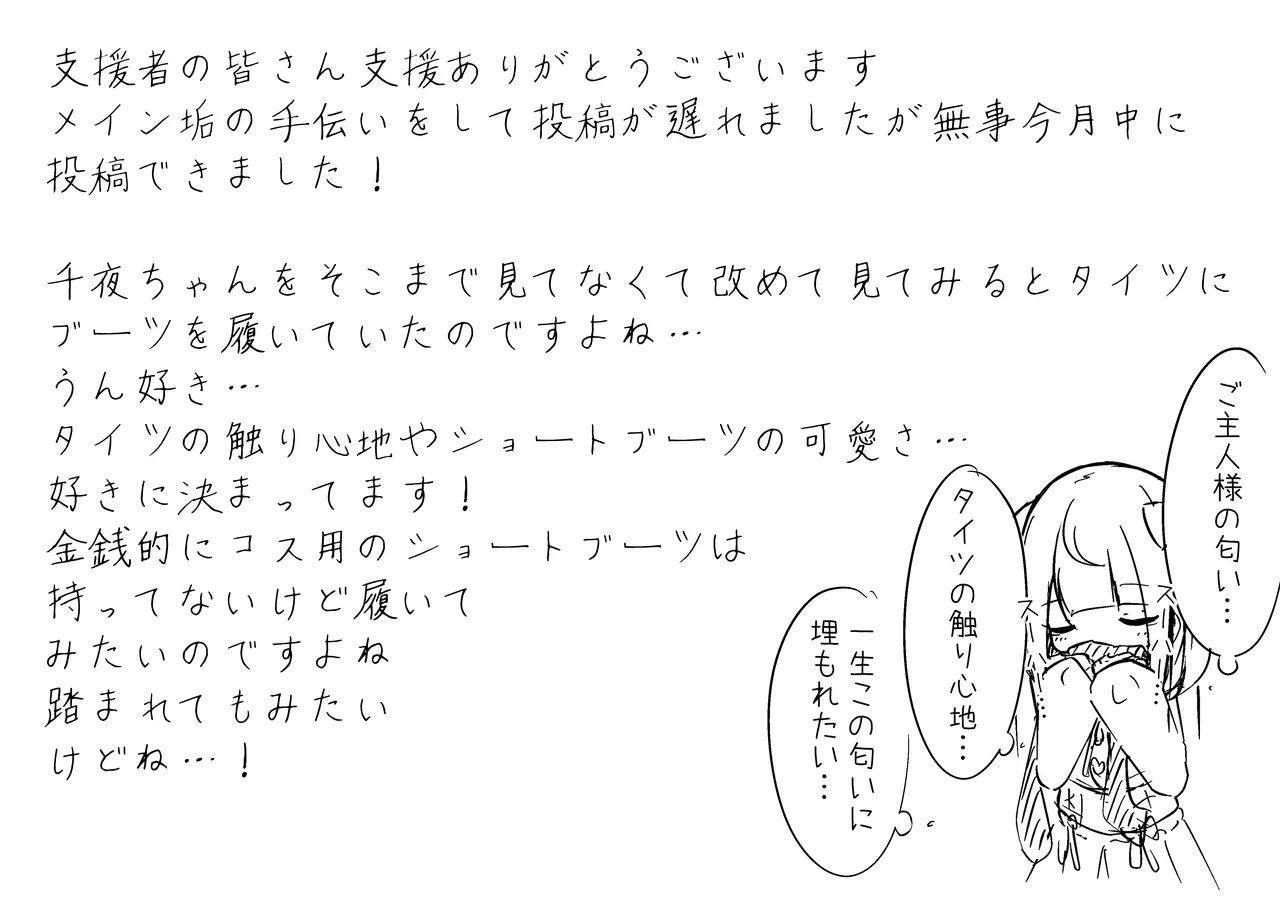 支援者の皆さん支援ありがとうございます
メイン垢の手伝いをして投稿が遅れましたが無事今月中に
投稿できました！
千夜ちゃんをそこまで見てなくて改めて見てみるとタイツに
ブーツを履いていたのですよね…
うん好き…
タイツの触り心地やショートブーツの可愛さ…
好きに決まってます！
金銭的にコス用のショートブーツは
持ってないけど履いて
みたいのですよね
踏まれてもみたい
けどね…！
ご主人様の匂い…
タイツの触り心地…
一生この匂いに
埋もれたい…
スー……
スー……